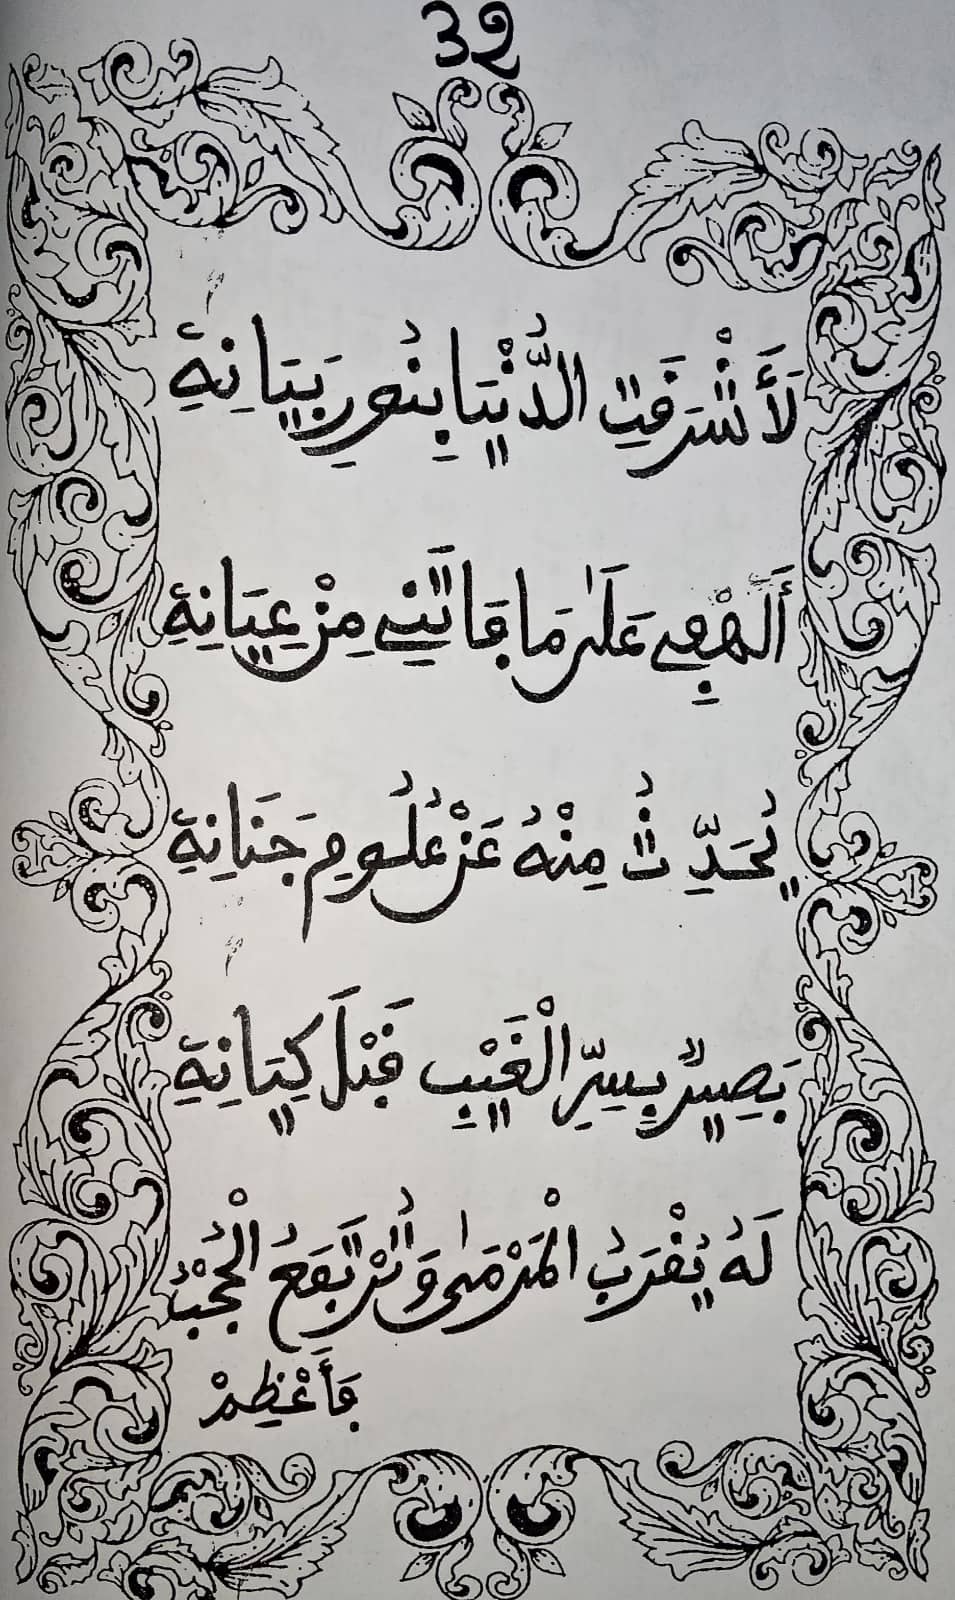 32
لَأَشْرَقَتِ الدُّنْيَا بِنُورِ بَيَانِهِ
أَلَهْفِي عَلَى مَا فَاتَنِي مِنْ عِيَانِهِ
يُحَدِّثُ مِنْهُ عَنْ عُلُومِ جَنَانِهِ
بَصِيرٌ بِسِرِّ الْغَيْبِ قَبْلَ كِيَانِهِ
لَهُ يُقْرَبُ الْمَرْمَى وَتُرْتَفَعُ الْحُجْبُ
فَأَعْظِمْ